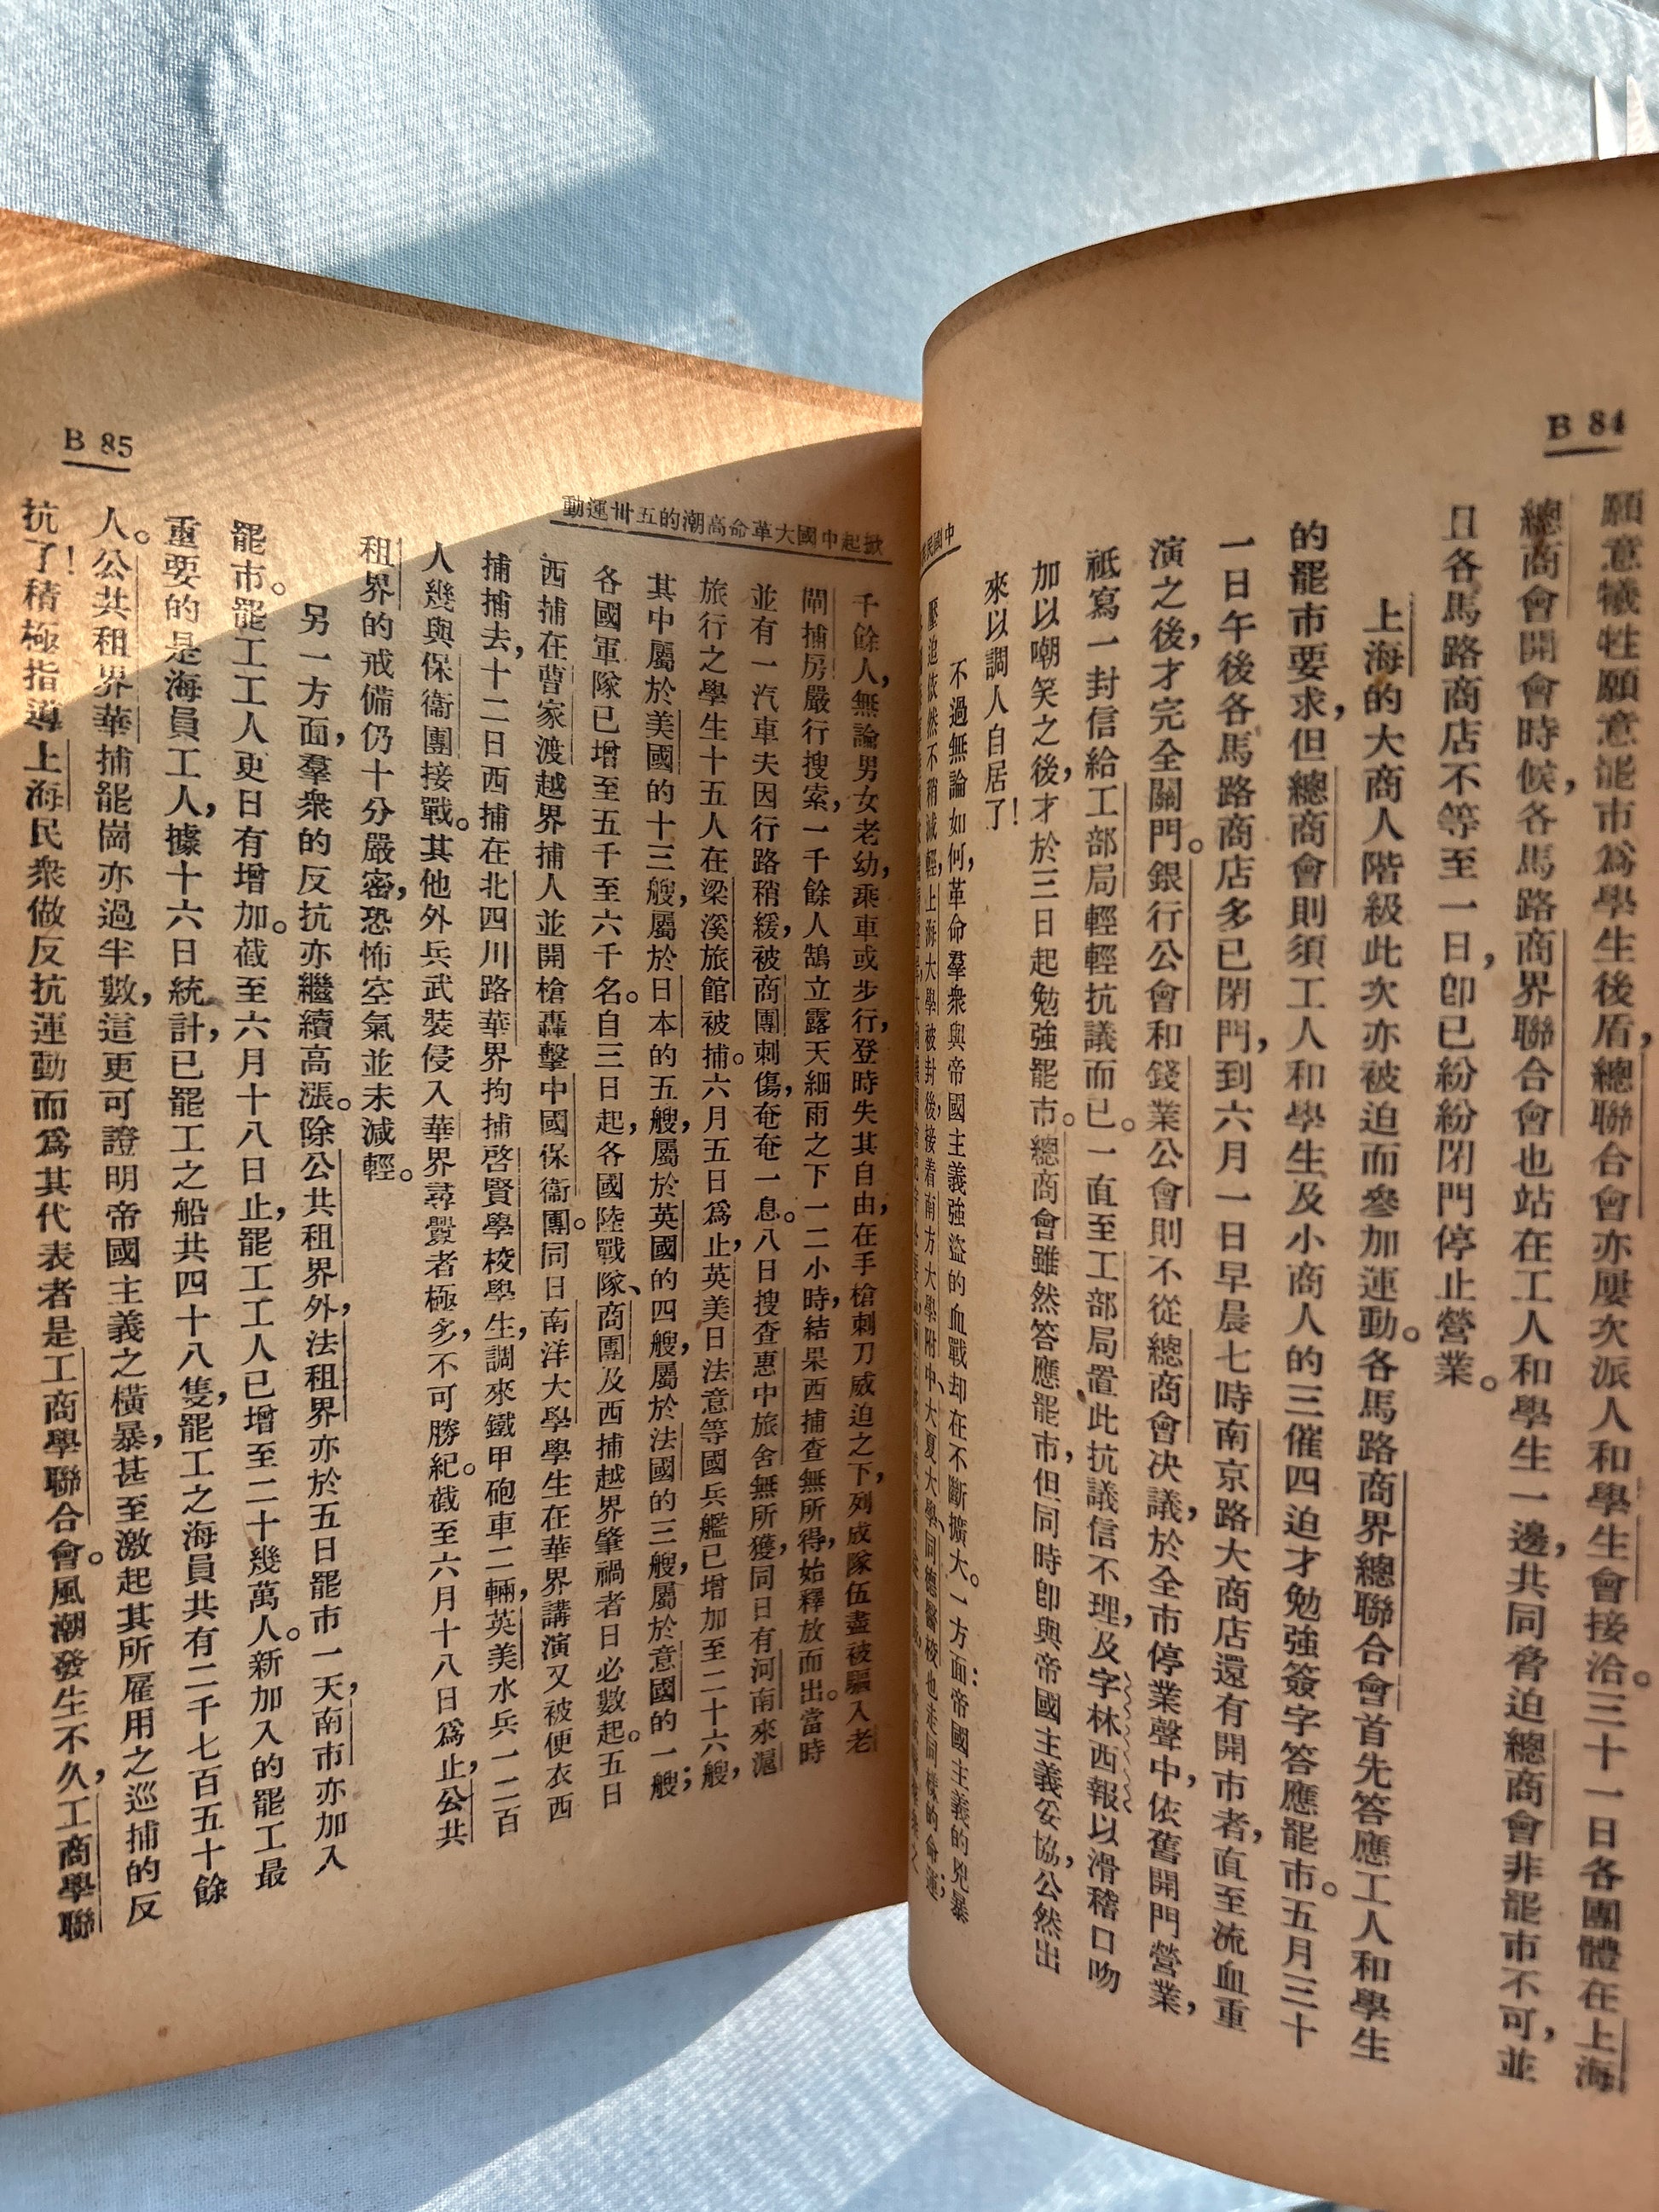 B 84
願意犧牲願意罷市爲學生後盾，總聯合會亦屢次派人和學生會接洽。三十一日各團體在上海
總商會開會時候，各馬路商界聯合會也站在工人和學生一邊，共同脅迫總商會非罷市不可，並
且各馬路商店不等至一日，卽已紛紛閉門停止營業。
上海的大商人階級此次亦被迫而參加運動。各馬路商界總聯合會首先答應工人和學生
的罷市要求，但總商會則須工人和學生及小商人的三催四迫才勉強簽字答應罷市。五月三十
一日午後各馬路商店多已閉門，到六月一日早晨七時南京路大商店還有開市者，直至流血重
演之後，才完全關門。銀行公會和錢業公會則不從總商會決議，於全市停業聲中，依舊開門營業，
祗寫一封信給工部局輕輕抗議而已。一直至工部局置此抗議信不理，及字林西報以滑稽口吻
加以嘲笑之後，才於三日起勉強罷市。總商會雖然答應罷市，但同時卽與帝國主義妥協，公然出
來以調人自居了！
不過無論如何，革命羣衆與帝國主義強盜的血戰却在不斷擴大。一方面：帝國主義的兇暴
壓迫依然不稍減輕，上海大學被封後，接着南方大學附中、大夏大學、同德醫校也走同樣的命運；
中國民
B 85
掀起中國大革命高潮的五卅運動
千餘人，無論男女老幼，乘車或步行，登時失其自由，在手槍刺刀威迫之下，列成隊伍盡被驅入老
閘捕房嚴行搜索，一千餘人鵠立露天細雨之下一二小時，結果西捕查無所得，始釋放而出。當時
並有一汽車夫因行路稍緩，被商團刺傷，奄奄一息。八日搜查惠中旅舍無所獲，同日有河南來滬
旅行之學生十五人在梁溪旅館被捕。六月五日爲止，英美日法意等國兵艦已增加至二十六艘，
其中屬於美國的十三艘，屬於日本的五艘，屬於英國的四艘，屬於法國的三艘，屬於意國的一艘；
各國軍隊已增至五千至六千名。自三日起，各國陸戰隊、商團及西捕越界肇禍者日必數起。五日
西捕在曹家渡越界捕人並開槍轟擊中國保衞團。同日南洋大學學生在華界講演又被便衣西
捕捕去，十二日西捕在北四川路華界拘捕啓賢學校學生，調來鐵甲砲車二輛，英美水兵一二百
人幾與保衞團接戰。其他外兵武裝侵入華界尋釁者極多，不可勝紀。截至六月十八日爲止，公共
租界的戒備仍十分嚴密，恐怖空氣並未減輕。
另一方面，羣衆的反抗亦繼續高漲。除公共租界外，法租界亦於五日罷市一天，南市亦加入
罷市。罷工工人更日有增加。截至六月十八日止，罷工工人已增至二十幾萬人。新加入的罷工最
重要的是海員工人，據十六日統計，已罷工之船共四十八隻，罷工之海員共有二千七百五十餘
人。公共租界華捕罷崗亦過半數，這更可證明帝國主義之橫暴，甚至激起其所雇用之巡捕的反
抗了！積極指導上海民衆做反抗運動而爲其代表者是工商學聯合會。風潮發生不久，工商學聯